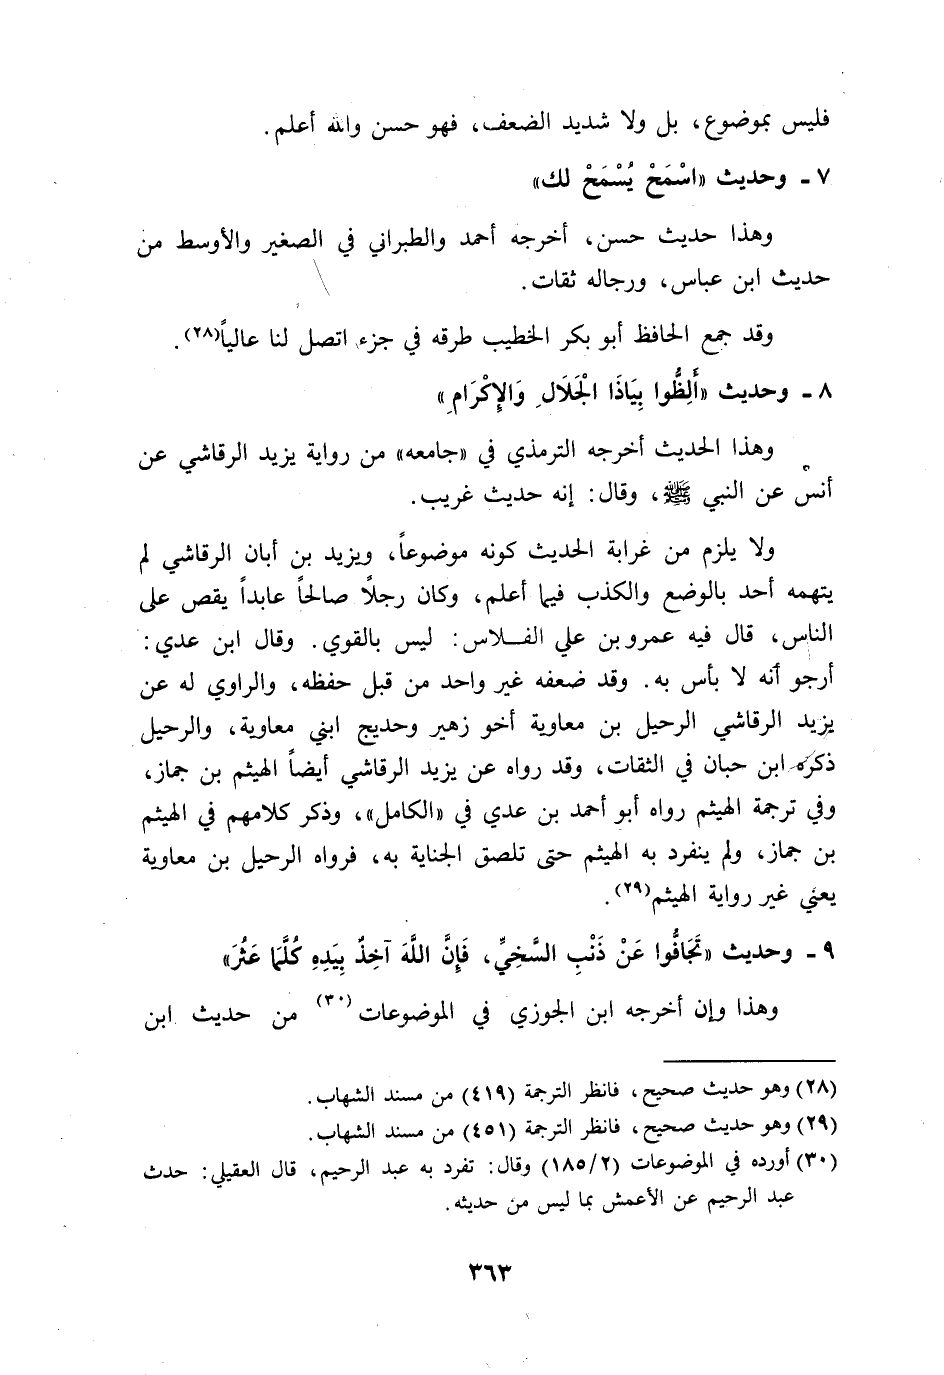 فليس بموضوع، بل ولا شديد الضعف، فهو حسن والله أعلم.
٧ - وحديث «اسْمَحْ يُسْمَحْ لك»
وهذا حديث حسن، أخرجه أحمد والطبراني في الصغير والأوسط من
حديث ابن عباس، ورجاله ثقات.
وقد جمع الحافظ أبو بكر الخطيب طرقه في جزء اتصل لنا عالياً(٢٨).
٨ - وحديث «أَلِظُّوا بِيَاذَا الْجَلَالِ وَالإِكْرَامِ»
وهذا الحديث أخرجه الترمذي في «جامعه» من رواية يزيد الرقاشي عن
أنس عن النبي ﷺ، وقال: إنه حديث غريب.
ولا يلزم من غرابة الحديث كونه موضوعاً، ويزيد بن أبان الرقاشي لم
يتهمه أحد بالوضع والكذب فيما أعلم، وكان رجلًا صالحاً عابداً يقص على
الناس، قال فيه عمرو بن علي الفلاس: ليس بالقوي. وقال ابن عدي:
أرجو أنه لا بأس به. وقد ضعفه غير واحد من قبل حفظه، والراوي له عن
يزيد الرقاشي الرحيل بن معاوية أخو زهير وحديج ابني معاوية، والرحيل
ذكره ابن حبان في الثقات، وقد رواه عن يزيد الرقاشي أيضاً الهيثم بن جماز،
وفي ترجمة الهيثم رواه أبو أحمد بن عدي في «الكامل»، وذكر كلامهم في الهيثم
بن جماز، ولم ينفرد به الهيثم حتى تلصق الجناية به، فرواه الرحيل بن معاوية
يعني غير رواية الهيثم(٢٩).
٩ - وحديث «تَجَافُّوا عَنْ ذَنْبِ السَّخِيِّ، فَإِنَّ اللَّهَ آخِذٌ بِيَدِهِ كُلَّمَا عَثُرَ»
وهذا وإن أخرجه ابن الجوزي في الموضوعات(٣٠) من حديث ابن
(٢٨) وهو حديث صحيح، فانظر الترجمة (٤١٩) من مسند الشهاب.
(٢٩) وهو حديث صحيح، فانظر الترجمة (٤٥١) من مسند الشهاب.
(٣٠) أورده في الموضوعات (١٨٥/٢) وقال: تفرد به عبد الرحيم، قال العقيلي: حدث
عبد الرحيم عن الأعمش بما ليس من حديثه.
٣٦٣